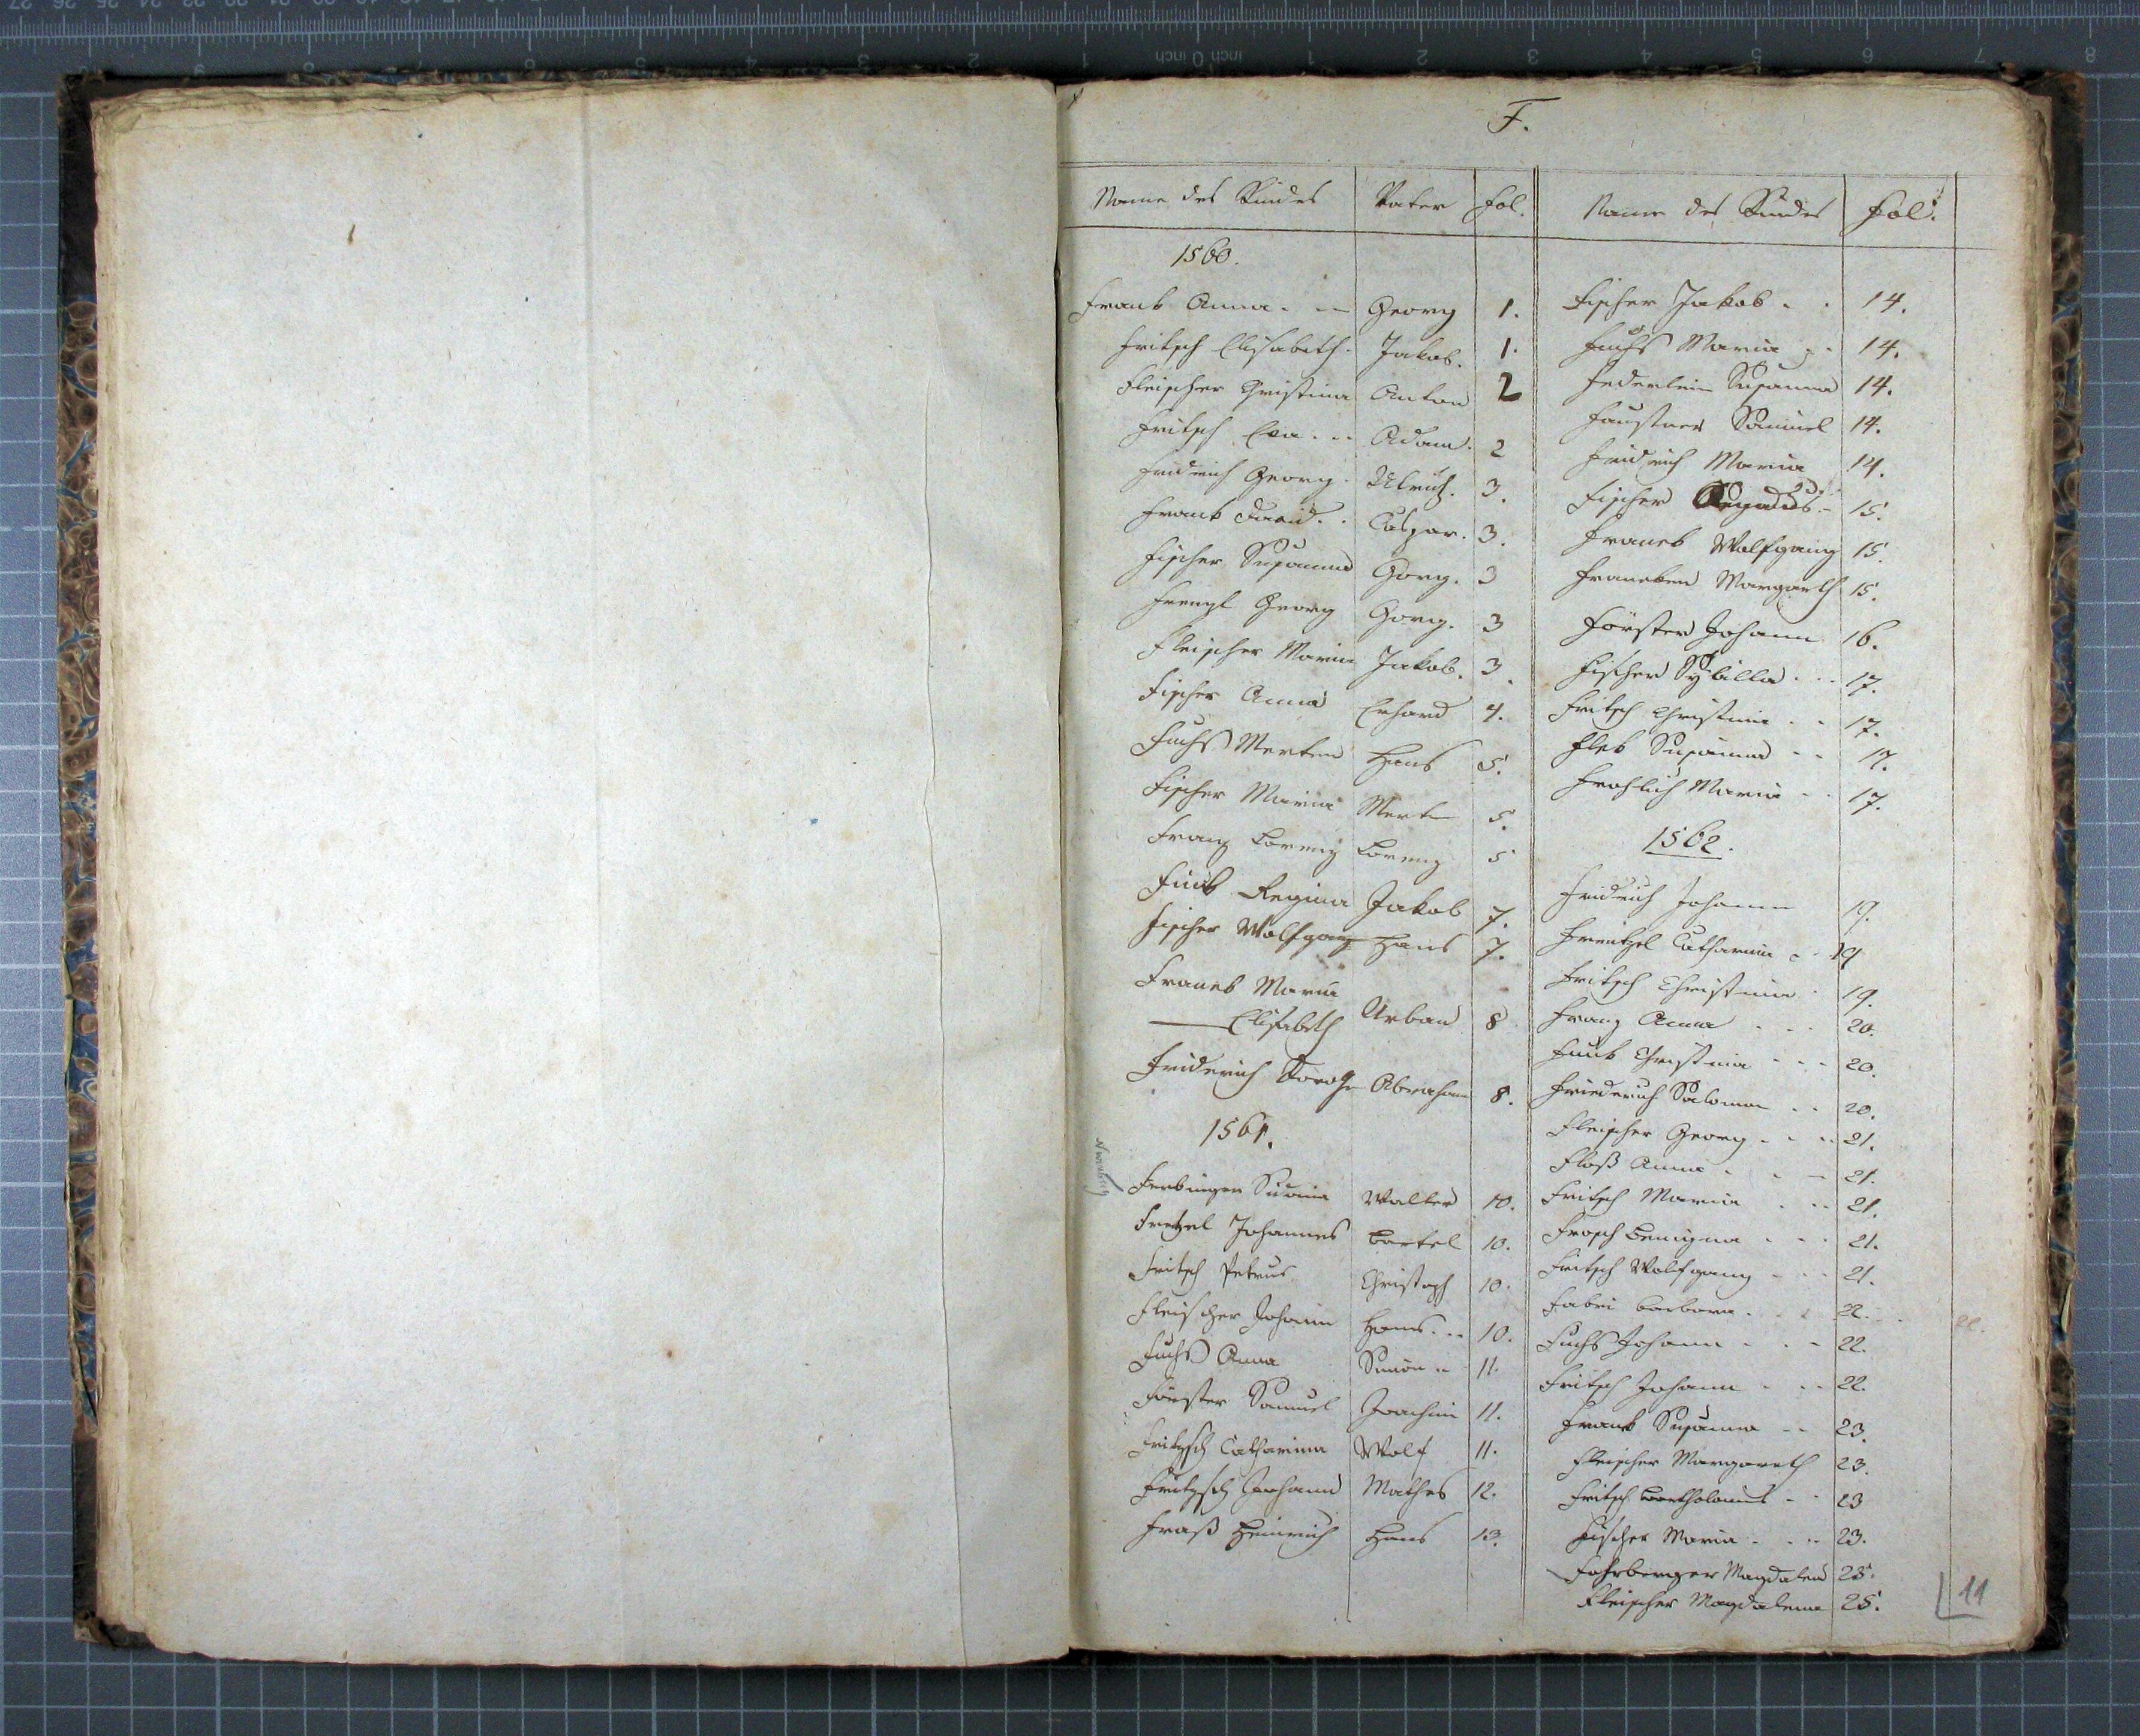 F.
Name des Kindes Vater Fol.
1560.
Frank Anna Georg 1.
Fritsch Elisabeth. Jakob. 1.
Fleischer Christina Anton 2
Fritsch Eva Adam. 2
Fridrich Georg. Ulrich. 3.
Frank David. Caspar. 3.
Fischer Susanna Georg. 3
Frenzl Georg Georg. 3
Fleischer Maria Jakob. 3.
Fischer Anna Erhard 4.
Fuchs Merten Hans 5.
Fischer Maria Mert 5.
Franz Lorenz Lorenz 5
Funk Regina Jakob 7.
Fischer Wolfgang Hans 7.
Franck Maria
— Elisabeth Urban 8
Friderich Dorothe Abraham 8.
1561.
Ferbinger Walter 10.
Fretzel Johannes Bartel 10.
Fritsch Petrus Christoph 10.
Fleischer Johann Hans 10.
Fuchs Anna Simon 11.
Förster Samuel Joachim 11.
Fritzsch Catharina Wolf 11.
Fritzsch Johann Mathes 12.
Fraß Heinrich Hans 13.
Name des Kindes Fol.
Fischer Jakob 14.
Fuchs Maria 14.
Federlein Susanna 14.
Faustner Samuel 14.
Fridrich Maria 14.
Fischer 15.
Franck Wolfgang 15.
Francken Margareth 15.
Förster Johann 16.
Fischer Sybilla 17.
Fritsch Christina 17.
Flek Susanna 17.
Frohlich Maria 17.
1562.
Fridrich Johann 19.
Frentzel Catharina 19
Fritsch Christina 19.
Franz Anna 20.
Funk Christina 20.
Friederich Salomon 20.
Fleischer Georg 21.
Floß Anna 21.
Fritsch Maria 21.
Frosch Benigna 21.
Fritsch Wolfgang 21.
Fabri Barbara 22.
Fuchs Johann 22.
Fritsch Johann 22.
Frank Susanna 23.
Fleischer Margareth 23.
Fritsch Bartholomus 23
Fischer Maria 23.
Fahrberger Magdalena 25.
Fleischer Magdalena 25.
11